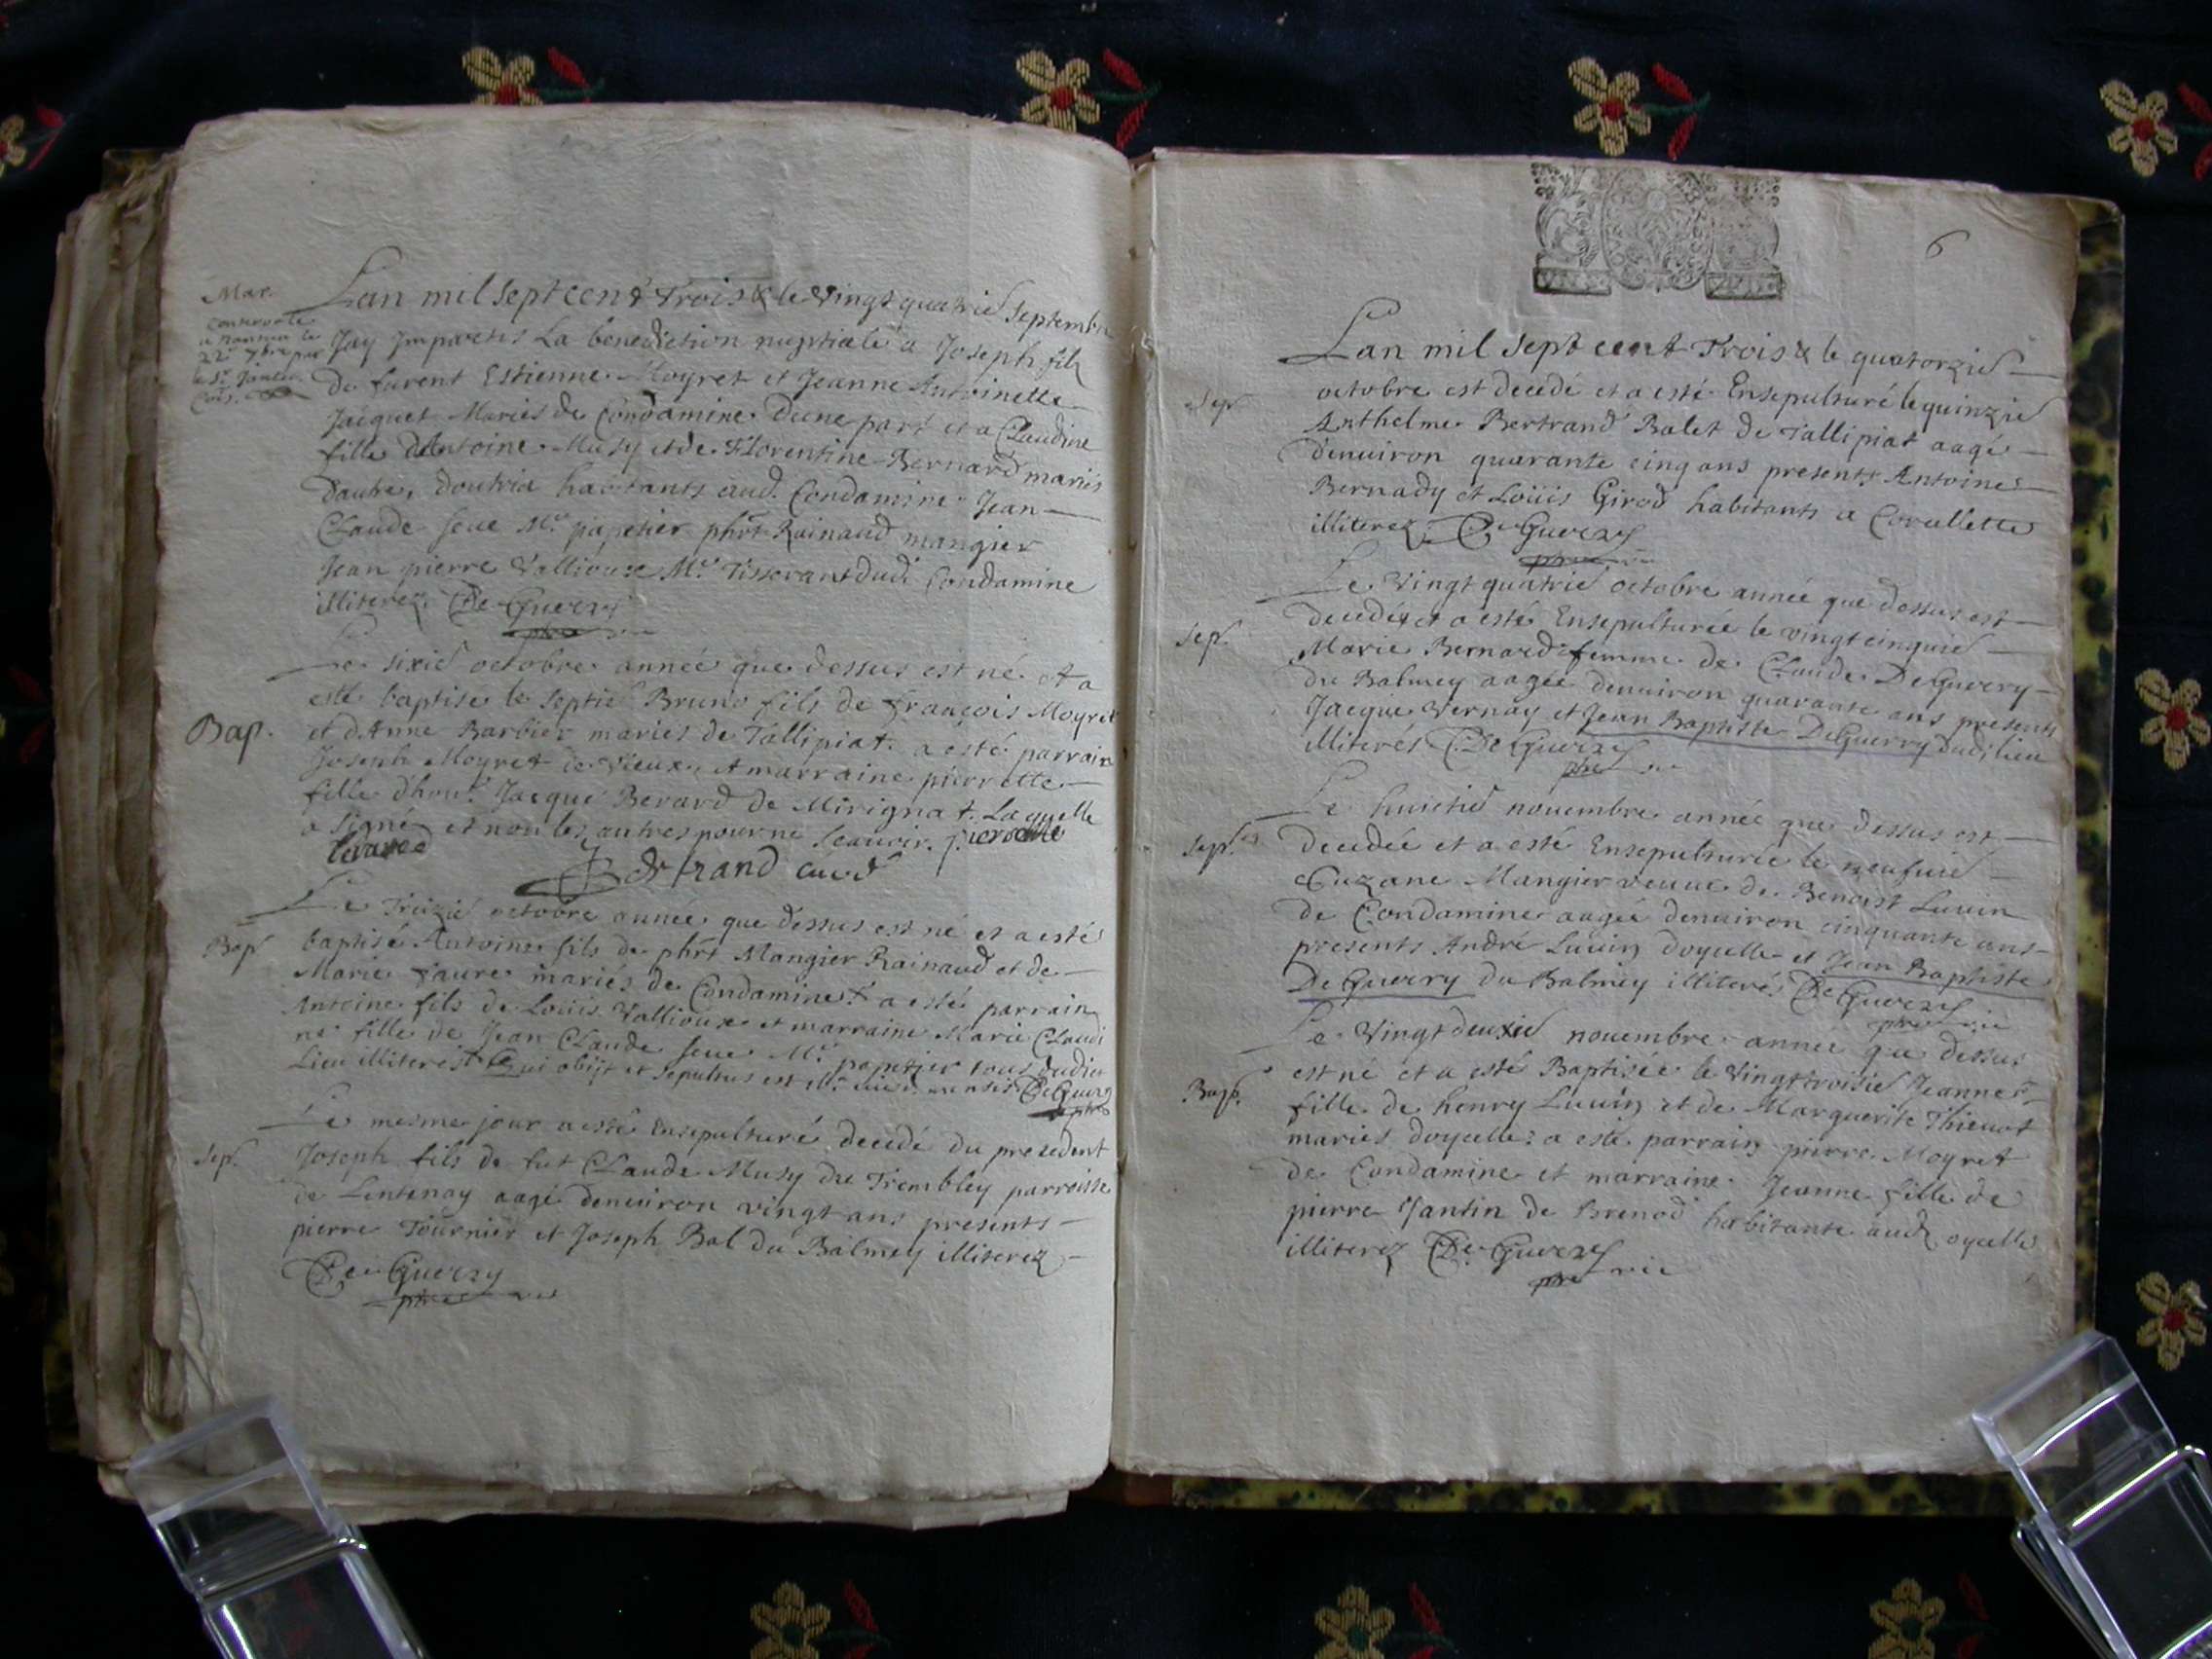 Mar.
Lan mil sept cent Trois & le vingt quatrie septembre
Jay Impartis La benediction nuptiale a Joseph fils
de furent Estienne Moyret et Jeanne Antoinette
Jacquet Mariés de Condamine dune part et a Claudine
fille dAntoine Musy et de Florentine Bernard mariés
dautre, doutria habitants aud. Condamine Jean
Claude seue Mre papetier phrt Rainaud mangier
Jean pierre Vallioux Mre Tisserant dudi Condamine
illiterez. De Guerry
pbre
Bap.
Le sixie octobre année que dessus est né et a
esté baptise le septie Bruno fils de françois Moyret
et dAnne Barbier mariés de Tallipiat. a esté parrain
Joseph Moyret de vieux, et marraine pierrette
fille dhon. Jacque Berard de Mirignat. Laquelle
a signé et non les autres pour ne scavoir. pierrette
berard
Bertrand curé
Bap
Le Treizie octobre année que dessus est né et a esté
baptisé Antoine fils de phrt Mangier Rainaud et de
Marie faure mariés de Condamine + a esté parrain
Antoine fils de Loüis Vallioux et marraine Marie Claudi
ne fille de Jean Claude seue Mre papetier tous dudict
Lieu illiterés + Qui obijt et sepultus est mensis De Guerry
pbre
Sep.
Le mesme jour a esté Ensepulturé decedé du precedent
Joseph fils de fut Claude Musy du Trembley parroisse
de Lentenay aagé denuiron vingt ans presents
pierre Tournier et Joseph Bal du Balmey illiterez
De Guerry
pbre
6
Sep.
Lan mil sept cent Trois & le quatorzie
octobre est decedé et a esté Ensepulturé le quinzie
Anthelme Bertrand Balet de Tallipiat aagé
denuiron quarante cinq ans presents Antoine
Bernady et Loüis Girod habitants a Corcellette
illiterez De Guerry
pbre
Sep.
Le Vingt quatrie octobre année que dessus est
decedée et a esté Ensepulturée le vingt cinquie
Marie Bernard femme de Claude DeGuerry
du Balmey aagée denuiron quarante ans presents
Jacque Vernay et Jean Baptiste DeGuerry dud. lieu
illiterés De Guerry
pbre
Sep.
Le huictie nouembre année que dessus est
decedée et a esté Ensepulturée le neufuie
Suzane Mangier veuue de Benoist Luuin
de Condamine aagée denuiron cinquante ans
presents André Luuin doyselle et Jean Baptiste
De Guerry du Balmey illiterés De Guerry
pbre
Bap.
Le Vingt deuxie nouembre année que dessus
est né et a esté Baptisée le Vingt troisie Jeanne
fille de henry Luuin et de Marguerite Thieuot
mariés doycelle: a esté parrain pierre Moyret
de Condamine et marraine Jeanne fille de
pierre Jantin de Brenod habitante aud. oycelle
illiterez De Guerry
pbre